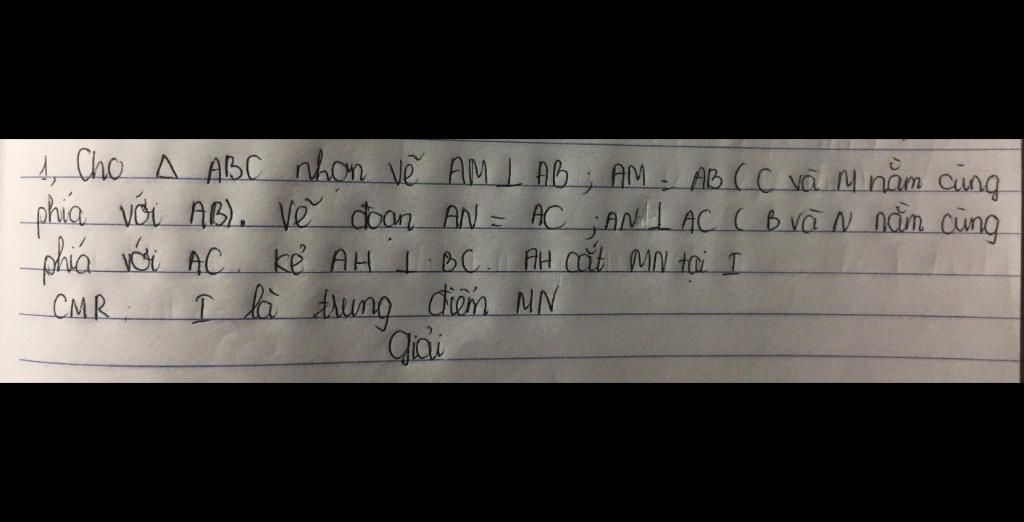 1, Cho Δ ABC nhọn vẽ AM ⊥ AB ; AM = AB ( C và M nằm cùng
phía với AB). Vẽ đoạn AN = AC ; AN ⊥ AC ( B và N nằm cùng
phiá với AC. kẻ AH ⊥ BC. AH cắt MN tại I
CMR : I là trung điểm MN
Giải